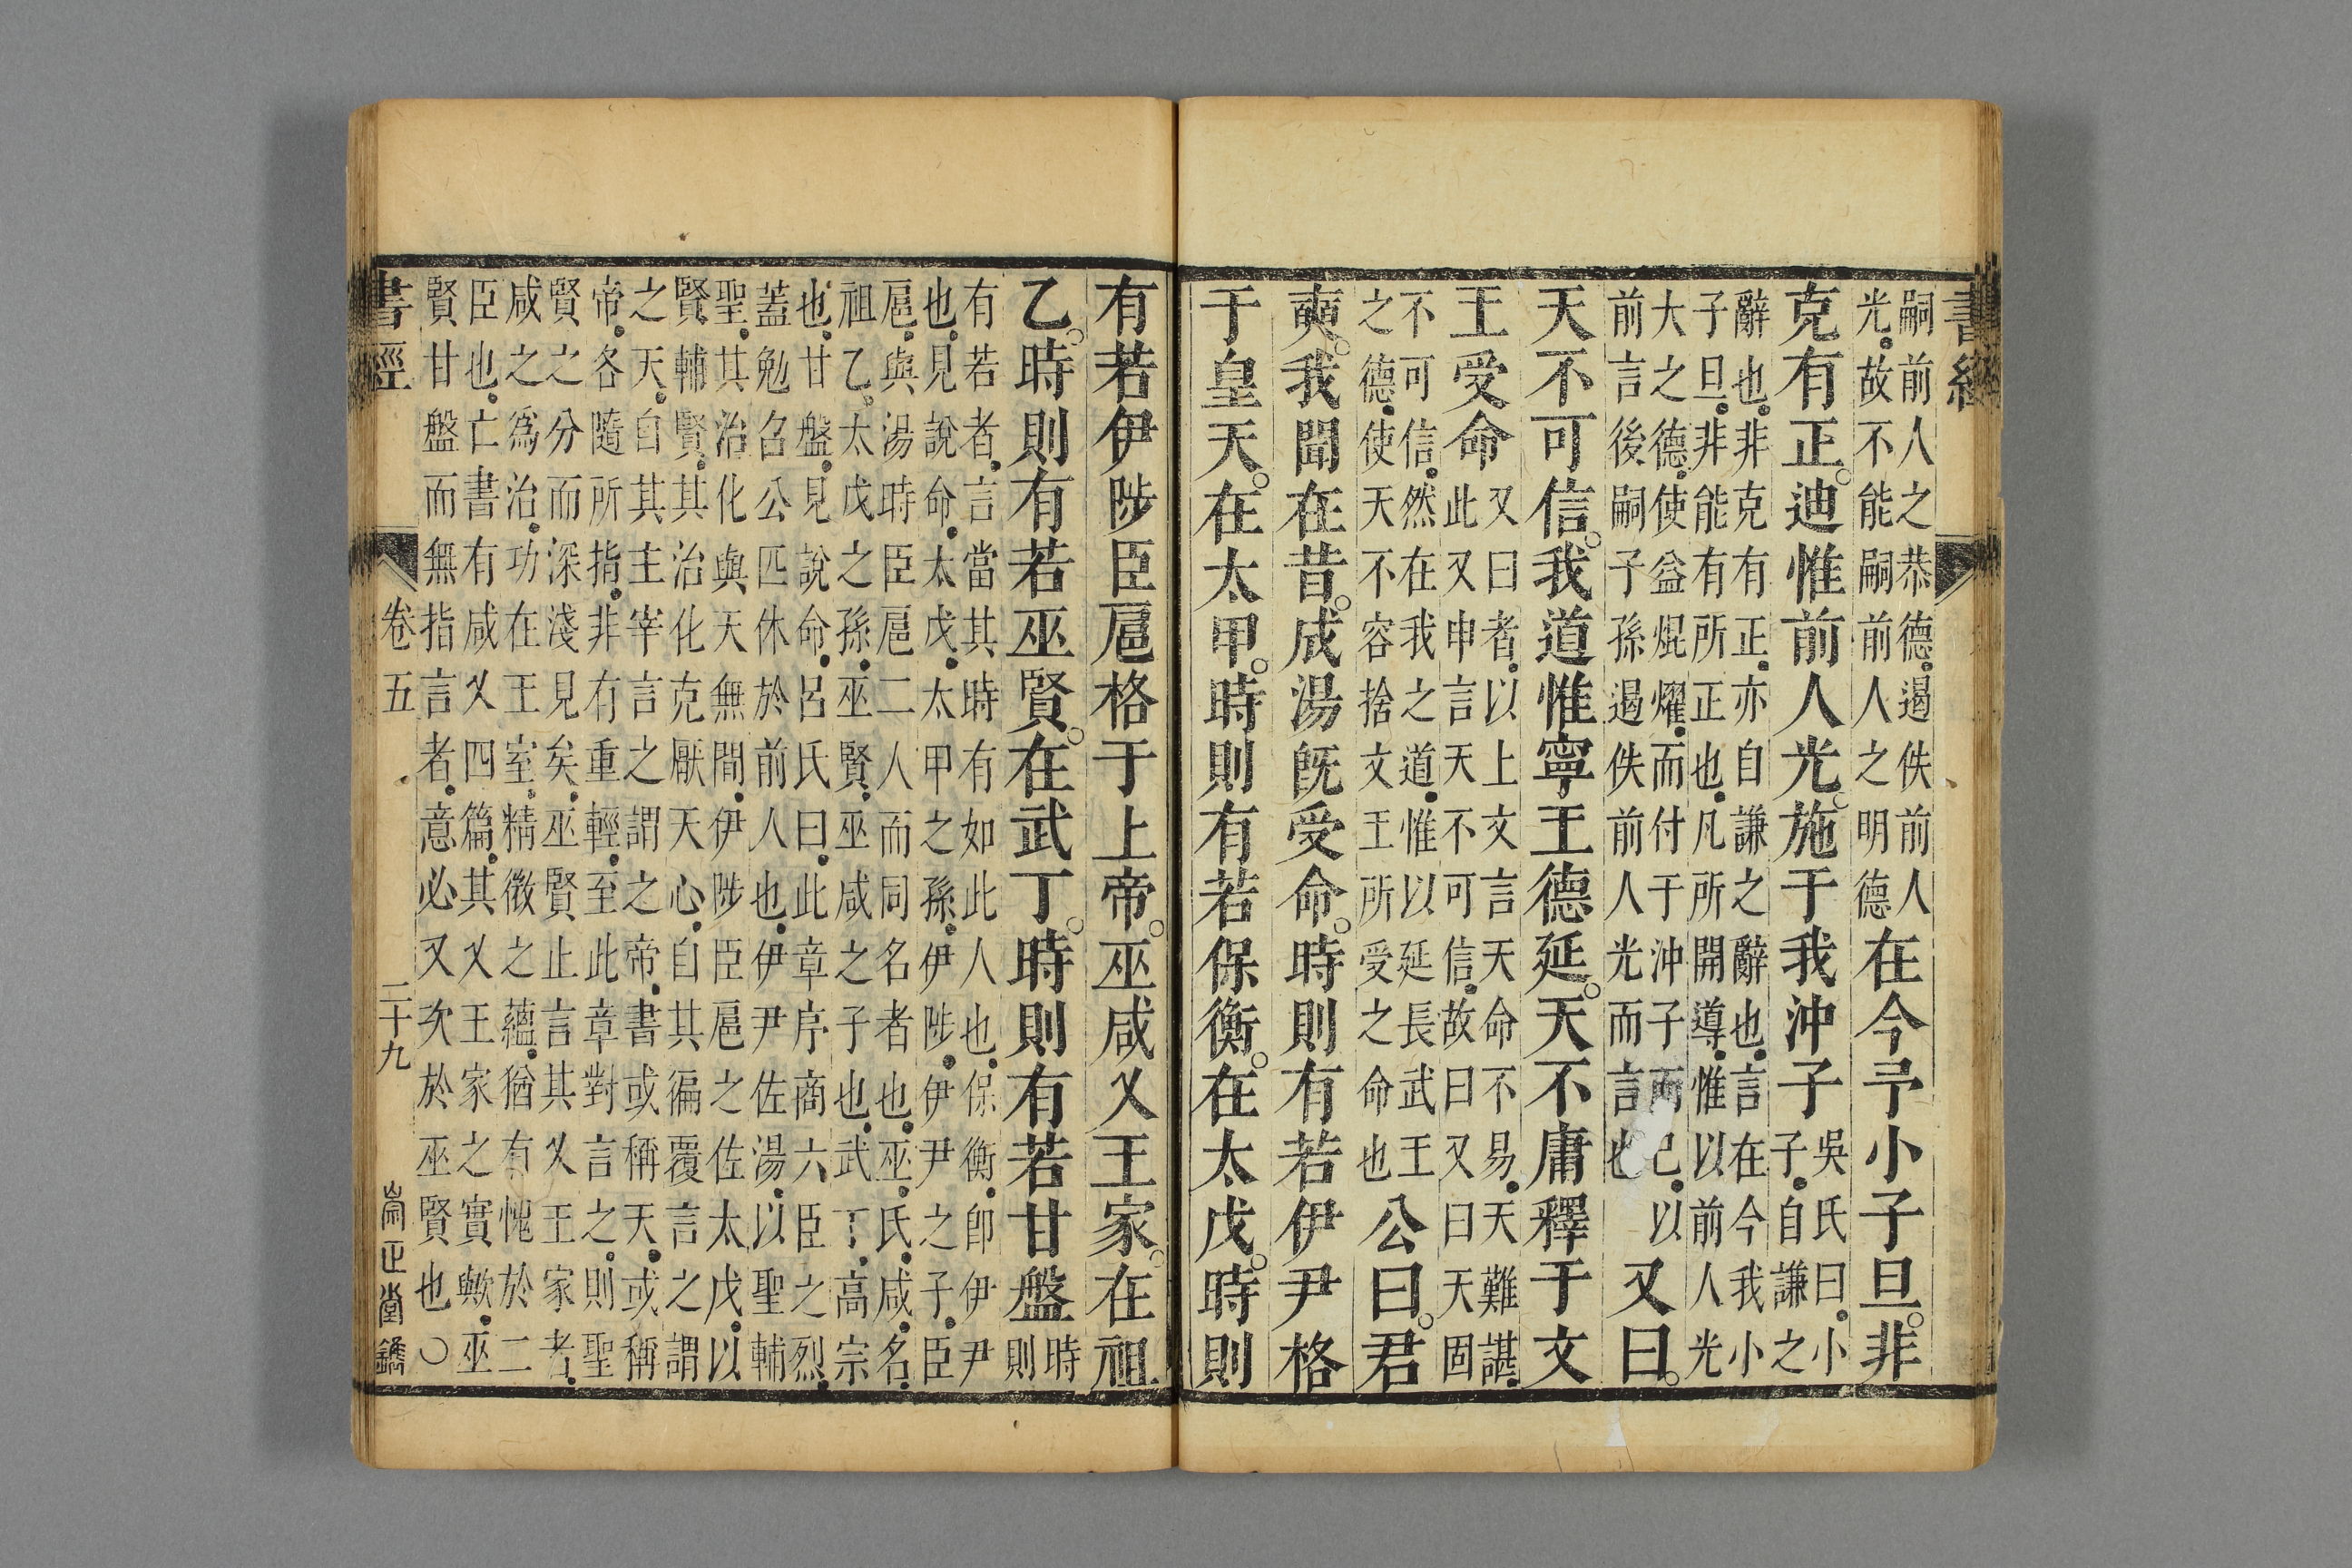 書經
嗣前人之恭德遏佚前人
光故不能嗣前人之明德
在今予小子旦。非
克有正。迪惟前人光。施于我沖子
吳氏曰小
子自謙之
辭也非克有正亦自謙之辭也言在今我小
子旦非能有所正也凡所開導惟以前人光
大之德使益焜燿而付于沖子而已以
前言後嗣子孫遏佚前人光而言也
又曰。
天不可信。我道惟寧王德延。天不庸釋于文
王受命
又曰者以上文言天命不易天難諶
此又申言天不可信故曰又曰天固
不可信然在我之道惟以延長武王
之德使天不容捨文王所受之命也
公曰。君
奭。我聞在昔。成湯旣受命。時則有若伊尹格
于皇天。在太甲。時則有若保衡。在太戊。時則
有若伊陟臣扈格于上帝。巫咸乂王家。在祖
乙。時則有若巫賢。在武丁。時則有若甘盤
時
則
有若者言當其時有如此人也保衡卽伊尹
也見說命太戊太甲之孫伊陟伊尹之子臣
扈與湯時臣扈二人而同名者也巫氏咸名
祖乙太戊之孫巫賢巫咸之子也武丁高宗
也甘盤見說命呂氏曰此章序商六臣之烈
蓋勉召公匹休於前人也伊尹佐湯以聖輔
聖其治化與天無間伊陟臣扈之佐太戊以
賢輔賢其治化克厭天心自其徧覆言之謂
之天自其主宰言之謂之帝書或稱天或稱
帝各隨所指非有重輕至此章對言之則聖
賢之分而深淺見矣巫賢止言其乂王家者
咸之爲治功在王室精微之蘊猶有愧於二
臣也亡書有咸乂四篇其乂王家之實歟巫
賢甘盤而無指言者意必又次於巫賢也○
書經 卷五 二十九 崇正堂鐫